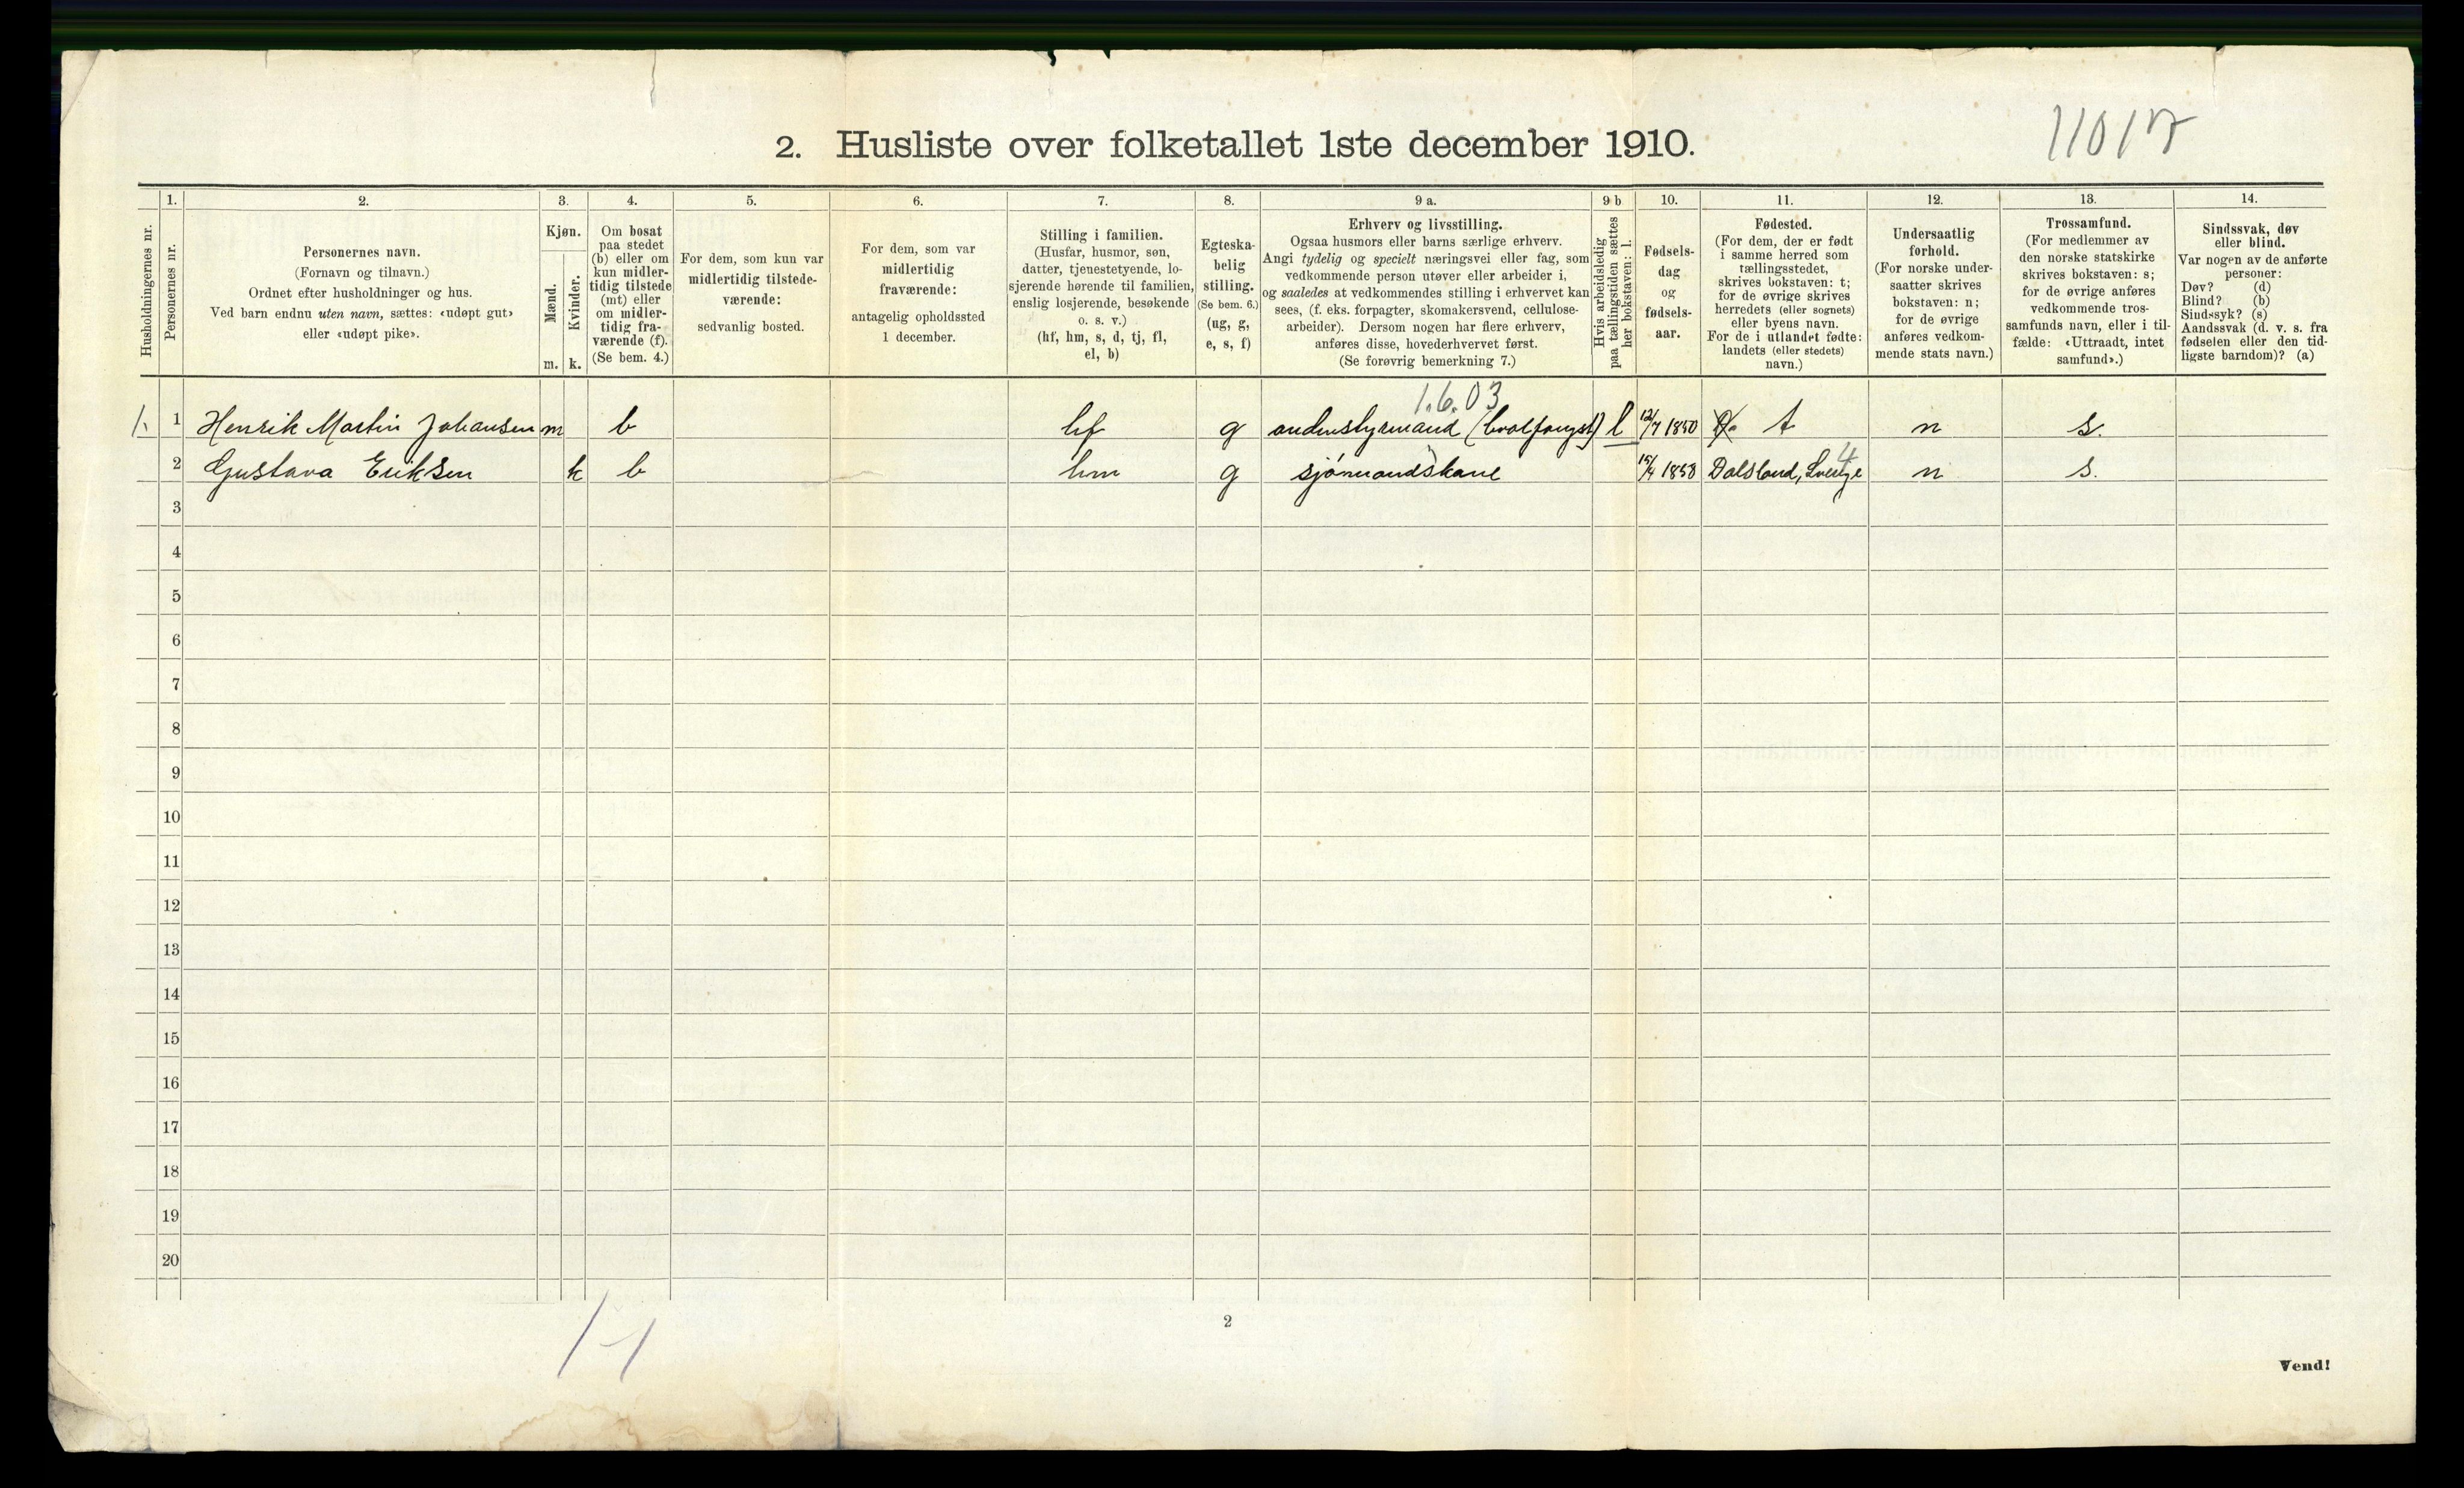 2. Husliste over folketallet 1ste december 1910.
Husholdningernes nr.
1.
Personernes nr.
2.
Personernes navn.
(Fornavn og tilnavn.)
Ordnet efter husholdninger og hus.
Ved barn endnu uten navn, sættes: «udøpt gut»
eller «udøpt pike».
3.
Kjøn.
Mænd.
m.
Kvinder.
k.
4.
Om bosat
paa stedet
(b) eller om
kun midler-
tidig tilstede
(mt) eller
om midler-
tidig fra-
værende (f).
(Se bem. 4.)
5.
For dem, som kun var
midlertidig tilstede-
værende:
sedvanlig bosted.
6.
For dem, som var
midlertidig
fraværende:
antagelig opholdssted
1 december.
7.
Stilling i familien.
(Husfar, husmor, søn,
datter, tjenestetyende, lo-
sjerende hørende til familien,
enslig losjerende, besøkende
o. s. v.)
(hf, hm, s, d, tj, fl,
el, b)
8.
Egteska-
belig
stilling.
(Se bem. 6.)
(ug, g,
e, s, f)
9 a.
Erhverv og livsstilling.
Ogsaa husmors eller barns særlige erhverv.
Angi tydelig og specielt næringsvei eller fag, som
vedkommende person utøver eller arbeider i,
og saaledes at vedkommendes stilling i erhvervet kan
sees, (f. eks. forpagter, skomakersvend, cellulose-
arbeider). Dersom nogen har flere erhverv,
anføres disse, hovederhvervet først.
(Se forøvrig bemerkning 7.)
9 b
Hvis arbeidsledig
paa tællingstiden sættes
her bokstaven: l.
10.
Fødsels-
dag
og
fødsels-
aar.
11.
Fødested.
(For dem, der er født
i samme herred som
tællingsstedet,
skrives bokstaven: t;
for de øvrige skrives
herredets (eller sognets)
eller byens navn.
For de i utlandet fødte:
landets (eller stedets)
navn.)
12.
Undersaatlig
forhold.
(For norske under-
saatter skrives
bokstaven: n;
for de øvrige
anføres vedkom-
mende stats navn.)
13.
Trossamfund.
(For medlemmer av
den norske statskirke
skrives bokstaven: s;
for de øvrige anføres
vedkommende tros-
samfunds navn, eller i til-
fælde: «Uttraadt, intet
samfund».)
14.
Sindssvak, døv
eller blind.
Var nogen av de anførte
personer:
Døv? (d)
Blind? (b)
Sindssyk? (s)
Aandssvak (d. v. s. fra
fødselen eller den tid-
ligste barndom)? (a)
1.6.03
1. 1 Henrik Martin Johansen m b hf g andenstyrmand (hvalfangst) l 12/7 1850 t n s.
2 Gustava Eriksen k b hm g sjømandskone 15/4 1853 Dalsland, Sverige 4 n s.
3
4
5
6
7
8
9
10
11
12
13
14
15
16
17
18
19
20
1-1
2
Vend!